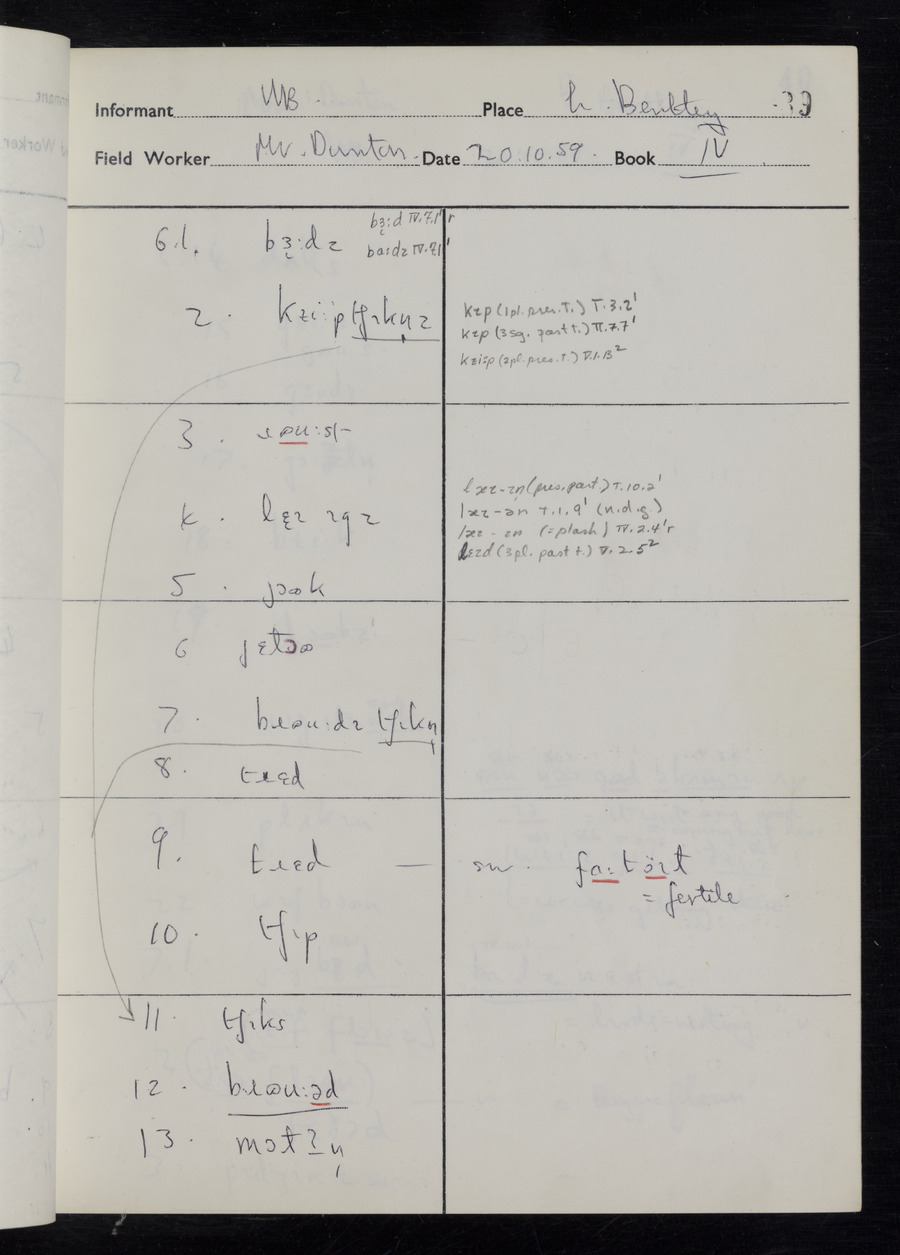 Informant WB. Place h. Berkley 39
Field Worker Mr. Dunton. Date 20.10.59. Book IV
6.1. bɜ̨:dz bɜ̨:d IV.7.1' r
ba:dz IV.7.1'
2. kɛi:p tʃɪkn̩z kɛp (1pl. pres. t.) T.3.2'
kɛp (3sg. past t.) II.7.7'
kɛi:p (2pl. pres. t.) V.1.13²
3.
4. lɛɪ ɛgz læɪ-ɪn (pres. part.) T.10.2'
læɪ-ən T.1.9' (n.d.g.)
læɪ-ɪn (=plash) IV.2.4' r
lɛɪd (3pl. past t.) V.2.5²
5. jook
6
7. bɹəu:dɪ tʃɪkn̩
8. tɹɛd
9. tɹɛd — sn. fa:təɪt
= fertile
10. tʃɪp
11. tʃɪks
12. bɹəu:əd
13. mɔtʔn̩